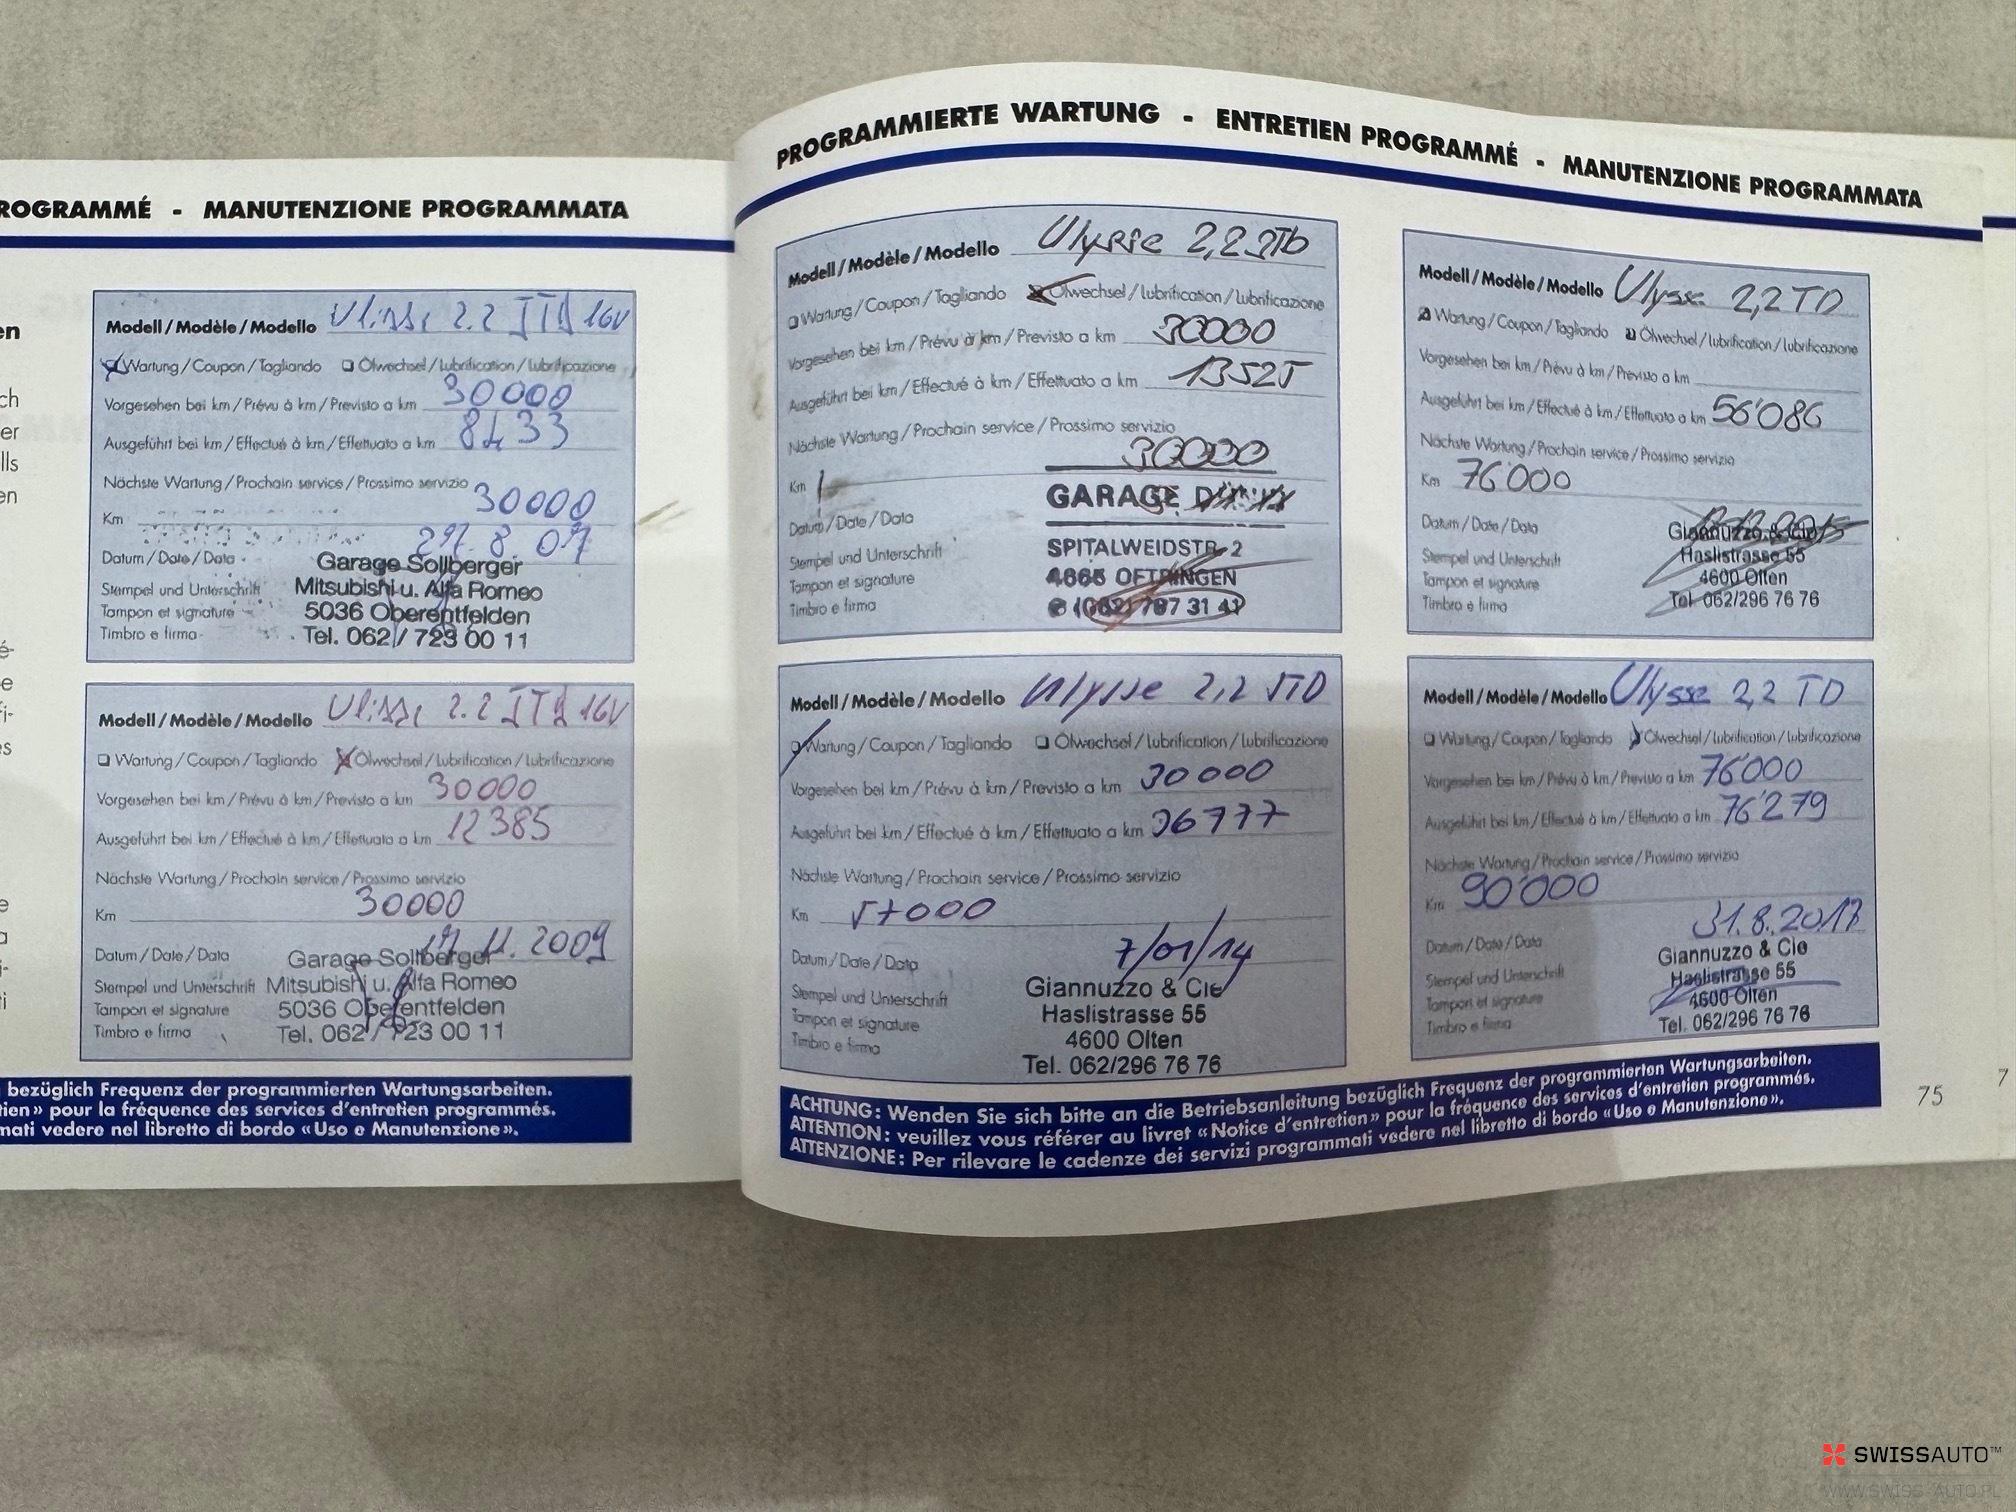 ROGRAMMÉ - MANUTENZIONE PROGRAMMATA
en
ch
er
lls
en
é-
e
fi-
es
e
a
i-
ti
Modell/Modèle/Modello Ulisse 2.2 JTD 16V
Wartung/Coupon/Tagliando Ölwechsel/Lubrification/Lubrificazione
Vorgesehen bei km/Prévu à km/Previsto a km 30000
Ausgeführt bei km/Effectué à km/Effettuato a km 8433
Nächste Wartung/Prochain service/Prossimo servizio
Km 30000
Datum/Date/Data 8.07
Stempel und Unterschrift
Tampon et signature
Timbro e firma
Garage Sollberger
Mitsubishi u. Alfa Romeo
5036 Oberentfelden
Tel. 062 / 723 00 11
Modell/Modèle/Modello Ulisse 2.2 JTD 16V
Wartung/Coupon/Tagliando Ölwechsel/Lubrification/Lubrificazione
Vorgesehen bei km/Prévu à km/Previsto a km 30000
Ausgeführt bei km/Effectué à km/Effettuato a km 12385
Nächste Wartung/Prochain service/Prossimo servizio
Km 30000
Datum/Date/Data 11.2009
Stempel und Unterschrift
Tampon et signature
Timbro e firma
Garage Sollberger
Mitsubishi u. Alfa Romeo
5036 Oberentfelden
Tel. 062 / 723 00 11
bezüglich Frequenz der programmierten Wartungsarbeiten.
tien» pour la fréquence des services d'entretien programmés.
mati vedere nel libretto di bordo «Uso e Manutenzione».
PROGRAMMIERTE WARTUNG - ENTRETIEN PROGRAMMÉ - MANUTENZIONE PROGRAMMATA
Modell/Modèle/Modello Ulysse 2,2 JTD
Wartung/Coupon/Tagliando Ölwechsel/Lubrification/Lubrificazione
Vorgesehen bei km/Prévu à km/Previsto a km 30000
Ausgeführt bei km/Effectué à km/Effettuato a km 13525
Nächste Wartung/Prochain service/Prossimo servizio
Km 30000
Datum/Date/Data
Stempel und Unterschrift
Tampon et signature
Timbro e firma
GARAGE
SPITALWEIDSTR. 2
4665 OFTRINGEN
(062) 797 31 41
Modell/Modèle/Modello Ulysse 2,2 TD
Wartung/Coupon/Tagliando Ölwechsel/Lubrification/Lubrificazione
Vorgesehen bei km/Prévu à km/Previsto a km
Ausgeführt bei km/Effectué à km/Effettuato a km 56'086
Nächste Wartung/Prochain service/Prossimo servizio
Km 76'000
Datum/Date/Data
Stempel und Unterschrift
Tampon et signature
Timbro e firma
Giannuzzo & Cie
Haslistrasse 55
4600 Olten
Tel. 062/296 76 76
Modell/Modèle/Modello Ulysse 2,2 JTD
Wartung/Coupon/Tagliando Ölwechsel/Lubrification/Lubrificazione
Vorgesehen bei km/Prévu à km/Previsto a km 30000
Ausgeführt bei km/Effectué à km/Effettuato a km 36777
Nächste Wartung/Prochain service/Prossimo servizio
Km 57000
Datum/Date/Data 7/01/14
Stempel und Unterschrift
Tampon et signature
Timbro e firma
Giannuzzo & Cie
Haslistrasse 55
4600 Olten
Tel. 062/296 76 76
Modell/Modèle/Modello Ulysse 2,2 TD
Wartung/Coupon/Tagliando Ölwechsel/Lubrification/Lubrificazione
Vorgesehen bei km/Prévu à km/Previsto a km 76'000
Ausgeführt bei km/Effectué à km/Effettuato a km 76'279
Nächste Wartung/Prochain service/Prossimo servizio
Km 90'000
Datum/Date/Data 31.8.2017
Stempel und Unterschrift
Tampon et signature
Timbro e firma
Giannuzzo & Cie
Haslistrasse 55
4600 Olten
Tel. 062/296 76 76
ACHTUNG: Wenden Sie sich bitte an die Betriebsanleitung bezüglich Frequenz der programmierten Wartungsarbeiten.
ATTENTION: veuillez vous référer au livret «Notice d'entretien» pour la fréquence des services d'entretien programmés.
ATTENZIONE: Per rilevare le cadenze dei servizi programmati vedere nel libretto di bordo «Uso e Manutenzione».
75
7
SWISSAUTO™
WWW.SWISS-AUTO.PL